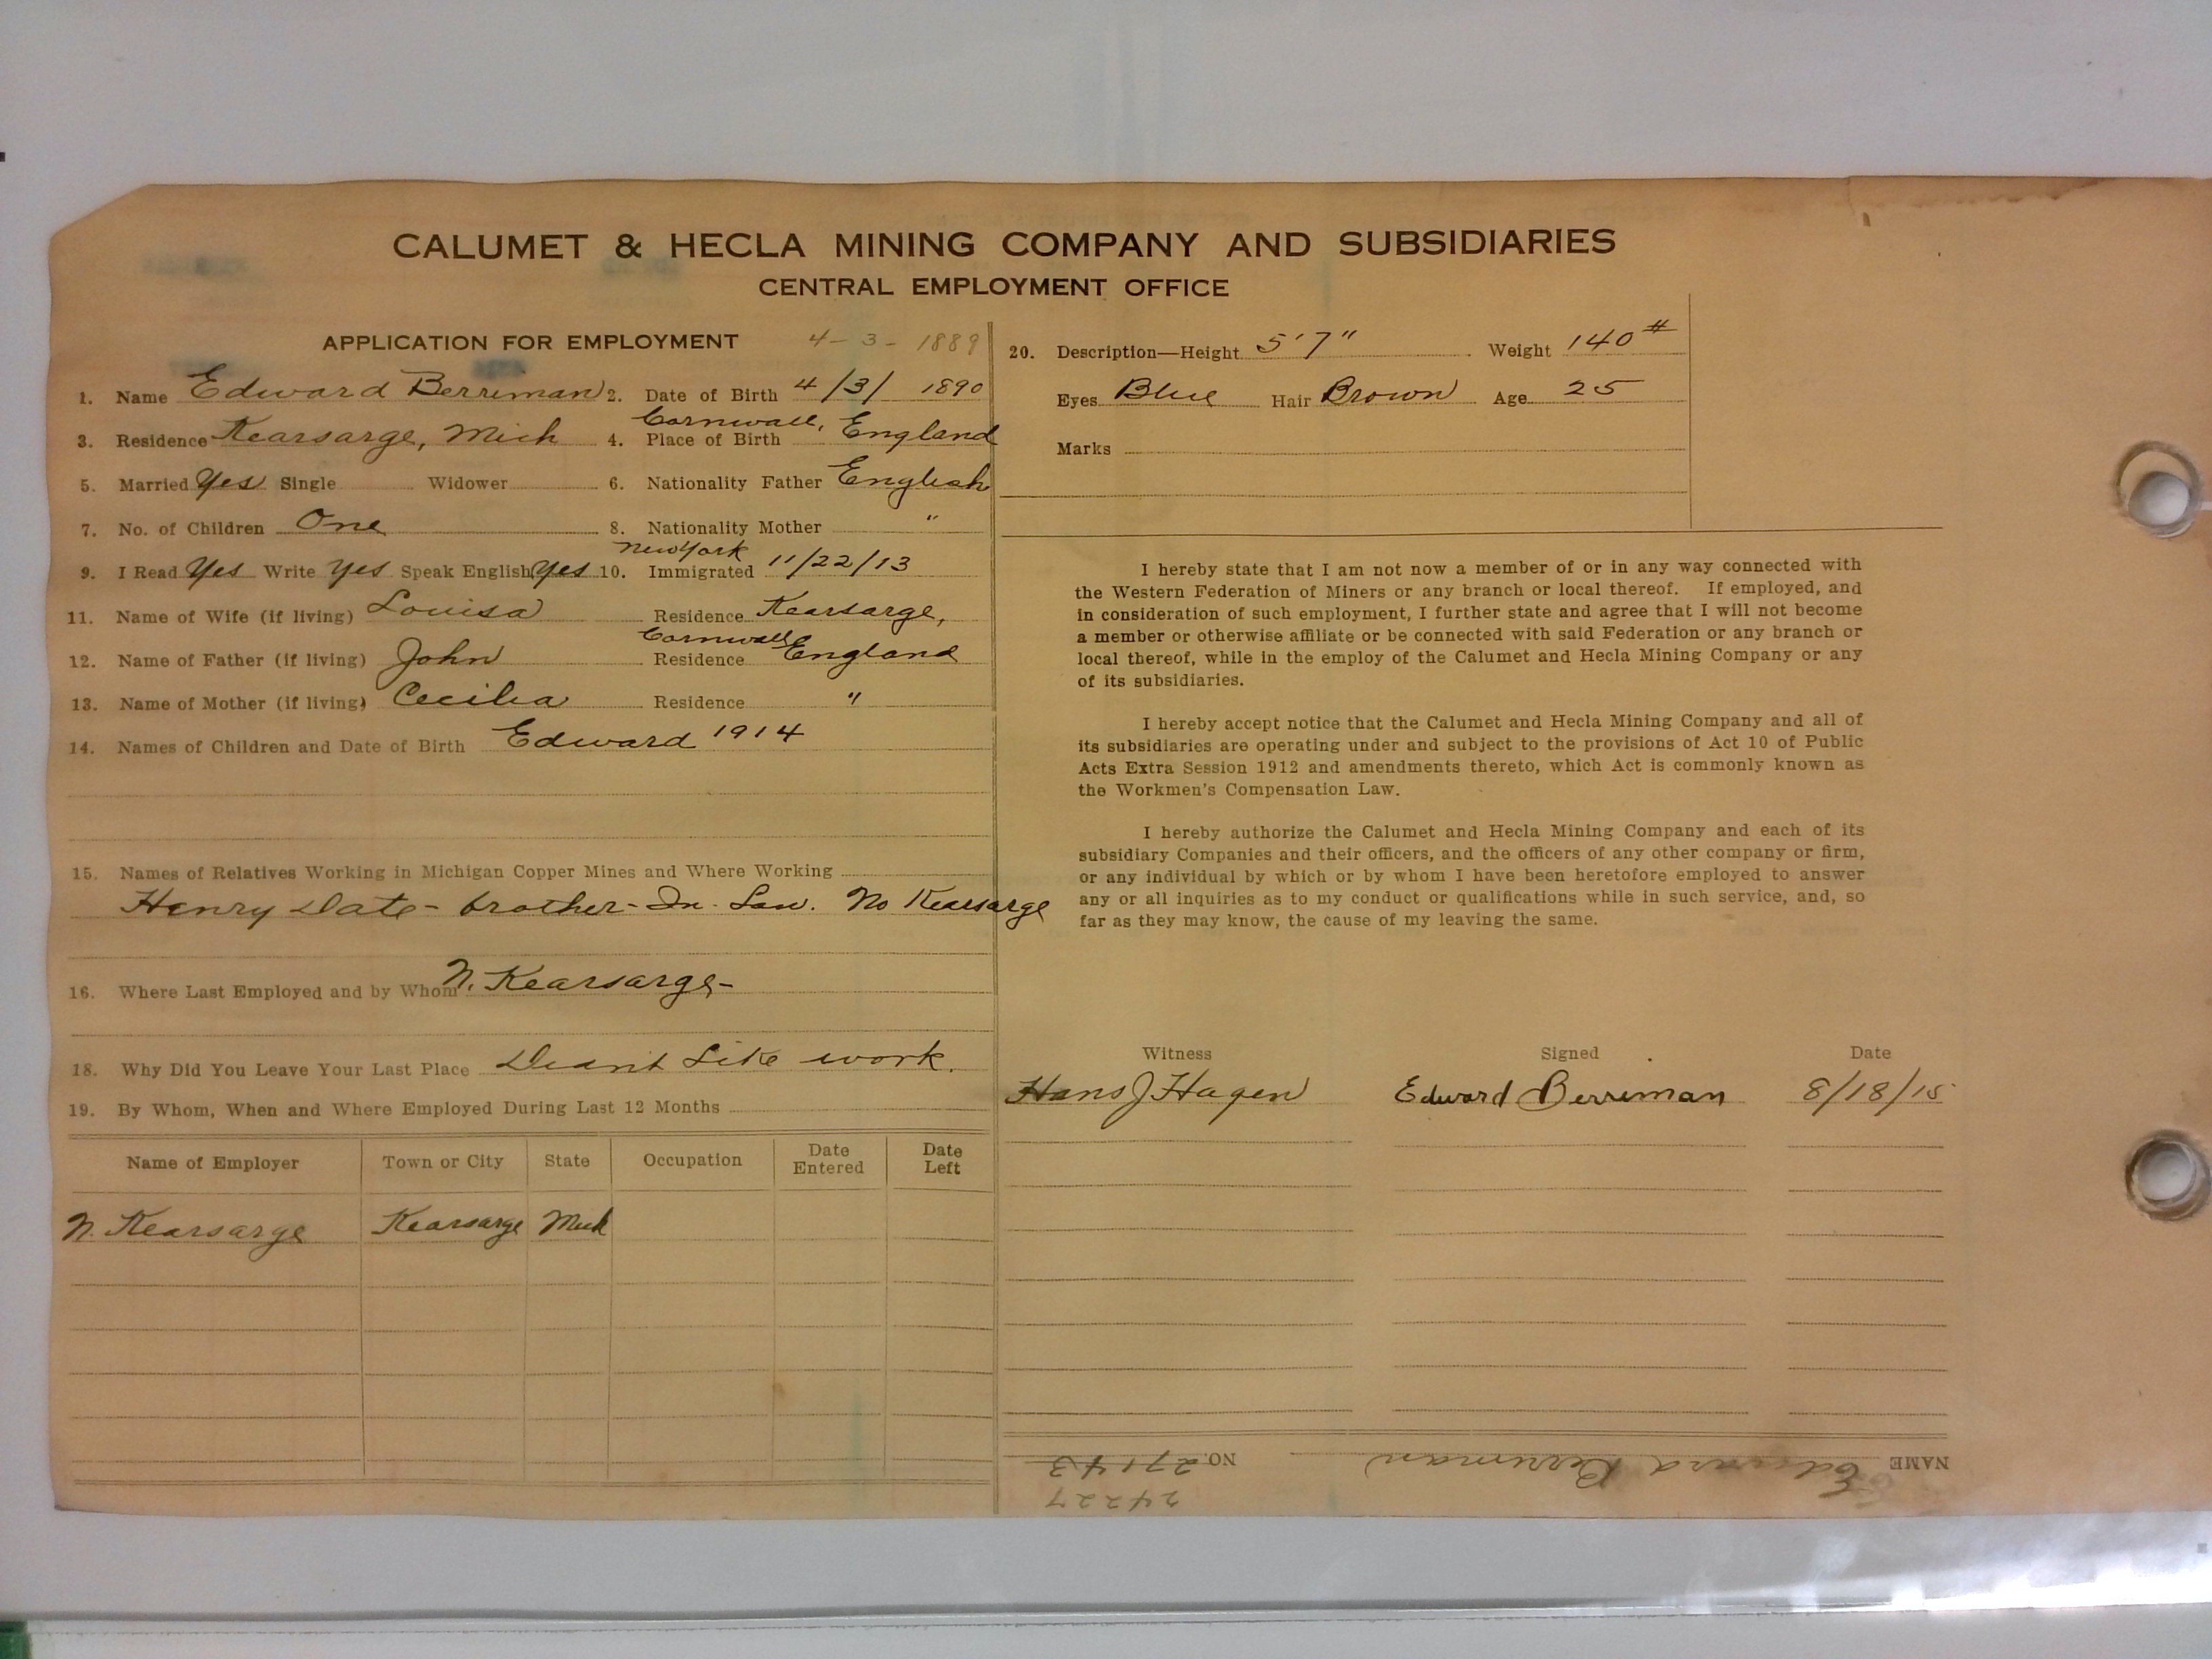 CALUMET & HECLA MINING COMPANY AND SUBSIDIARIES
CENTRAL EMPLOYMENT OFFICE
APPLICATION FOR EMPLOYMENT 4-3-1889
1. Name Edward Berriman 2. Date of Birth 4/3/1890
3. Residence Kearsarge, Mich 4. Place of Birth Cornwall, England
5. Married Yes Single Widower 6. Nationality Father English
7. No. of Children One 8. Nationality Mother "
9. I Read Yes Write Yes Speak English Yes 10. Immigrated New York 11/22/13
11. Name of Wife (if living) Louisa Residence Kearsarge,
12. Name of Father (if living) John Residence Cornwall England
13. Name of Mother (if living) Cecilia Residence "
14. Names of Children and Date of Birth Edward 1914
15. Names of Relatives Working in Michigan Copper Mines and Where Working
Henry Date - brother-In-Law. No Kearsarge
16. Where Last Employed and by Whom N. Kearsarge-
18. Why Did You Leave Your Last Place Didn't Like work.
19. By Whom, When and Where Employed During Last 12 Months
Name of Employer Town or City State Occupation Date Entered Date Left
N. Kearsarge Kearsarge Mich
20. Description—Height 5'7" Weight 140#
Eyes Blue Hair Brown Age 25
Marks
I hereby state that I am not now a member of or in any way connected with
the Western Federation of Miners or any branch or local thereof. If employed, and
in consideration of such employment, I further state and agree that I will not become
a member or otherwise affiliate or be connected with said Federation or any branch or
local thereof, while in the employ of the Calumet and Hecla Mining Company or any
of its subsidiaries.
I hereby accept notice that the Calumet and Hecla Mining Company and all of
its subsidiaries are operating under and subject to the provisions of Act 10 of Public
Acts Extra Session 1912 and amendments thereto, which Act is commonly known as
the Workmen's Compensation Law.
I hereby authorize the Calumet and Hecla Mining Company and each of its
subsidiary Companies and their officers, and the officers of any other company or firm,
or any individual by which or by whom I have been heretofore employed to answer
any or all inquiries as to my conduct or qualifications while in such service, and, so
far as they may know, the cause of my leaving the same.
Witness Signed Date
Hans J Hagen Edward Berriman 8/18/15
NAME Edward Berriman NO. 27143
24227